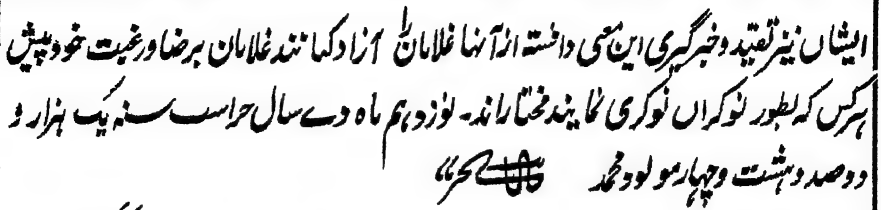 ایشاں نیز تقید و خبرگیری این معی دانسته از آنها غلامان را آزاد کنا نند غلامان برضا و رغبت خود پیش
ہرکس که بطور نوکراں نوکری نمایند مختاراند۔ نوزدہم ماہ دے سال حراست سنہ یک ہزار و
دو صد و ہشت و چہار مولود محمد